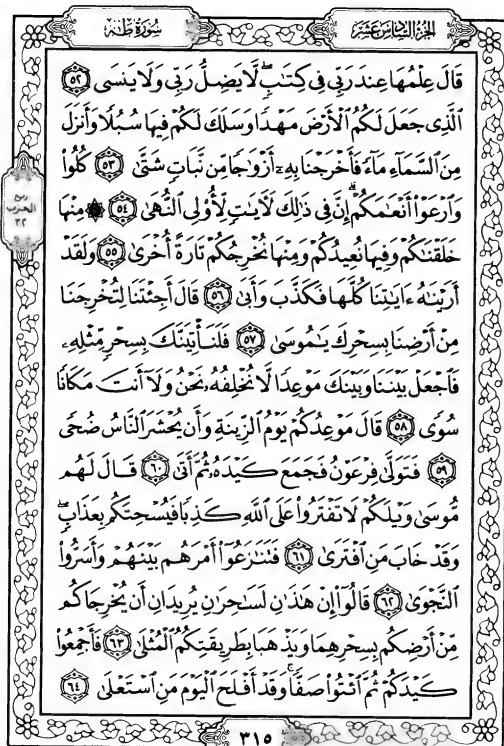 الجزء السادس عشر
سورة طه
قَالَ عِلْمُهَا عِندَ رَبِّي فِي كِتَٰبٍۖ لَّا يَضِلُّ رَبِّي وَلَا يَنسَى ٥٢
ٱلَّذِي جَعَلَ لَكُمُ ٱلْأَرْضَ مَهْدًا وَسَلَكَ لَكُمْ فِيهَا سُبُلًا وَأَنزَلَ
مِنَ ٱلسَّمَآءِ مَآءً فَأَخْرَجْنَا بِهِۦٓ أَزْوَٰجًا مِّن نَّبَاتٍ شَتَّىٰ ٥٣ كُلُوا۟
وَٱرْعَوْا۟ أَنْعَٰمَكُمْۗ إِنَّ فِي ذَٰلِكَ لَءَايَٰتٍ لِّأُو۟لِي ٱلنُّهَىٰ ٥٤ ۞ مِنْهَا
خَلَقْنَٰكُمْ وَفِيهَا نُعِيدُكُمْ وَمِنْهَا نُخْرِجُكُمْ تَارَةً أُخْرَىٰ ٥٥ وَلَقَدْ
أَرَيْنَٰهُ ءَايَٰتِنَا كُلَّهَا فَكَذَّبَ وَأَبَىٰ ٥٦ قَالَ أَجِئْتَنَا لِتُخْرِجَنَا
مِنْ أَرْضِنَا بِسِحْرِكَ يَٰمُوسَىٰ ٥٧ فَلَنَأْتِيَنَّكَ بِسِحْرٍ مِّثْلِهِۦ
فَٱجْعَلْ بَيْنَنَا وَبَيْنَكَ مَوْعِدًا لَّا نُخْلِفُهُۥ نَحْنُ وَلَآ أَنتَ مَكَانًا
سُوًى ٥٨ قَالَ مَوْعِدُكُمْ يَوْمُ ٱلزِّينَةِ وَأَن يُحْشَرَ ٱلنَّاسُ ضُحًى
٥٩ فَتَوَلَّىٰ فِرْعَوْنُ فَجَمَعَ كَيْدَهُۥ ثُمَّ أَتَىٰ ٦٠ قَالَ لَهُم
مُّوسَىٰ وَيْلَكُمْ لَا تَفْتَرُوا۟ عَلَى ٱللَّهِ كَذِبًا فَيُسْحِتَكُم بِعَذَابٍۖ
وَقَدْ خَابَ مَنِ ٱفْتَرَىٰ ٦١ فَتَنَٰزَعُوٓا۟ أَمْرَهُم بَيْنَهُمْ وَأَسَرُّوا۟
ٱلنَّجْوَىٰ ٦٢ قَالُوٓا۟ إِنْ هَٰذَٰنِ لَسَٰحِرَٰنِ يُرِيدَانِ أَن يُخْرِجَاكُم
مِّنْ أَرْضِكُم بِسِحْرِهِمَا وَيَذْهَبَا بِطَرِيقَتِكُمُ ٱلْمُثْلَىٰ ٦٣ فَأَجْمِعُوا۟
كَيْدَكُمْ ثُمَّ ٱئْتُوا۟ صَفًّاۚ وَقَدْ أَفْلَحَ ٱلْيَوْمَ مَنِ ٱسْتَعْلَىٰ ٦٤
ربع
الحزب
٣٢
٣١٥